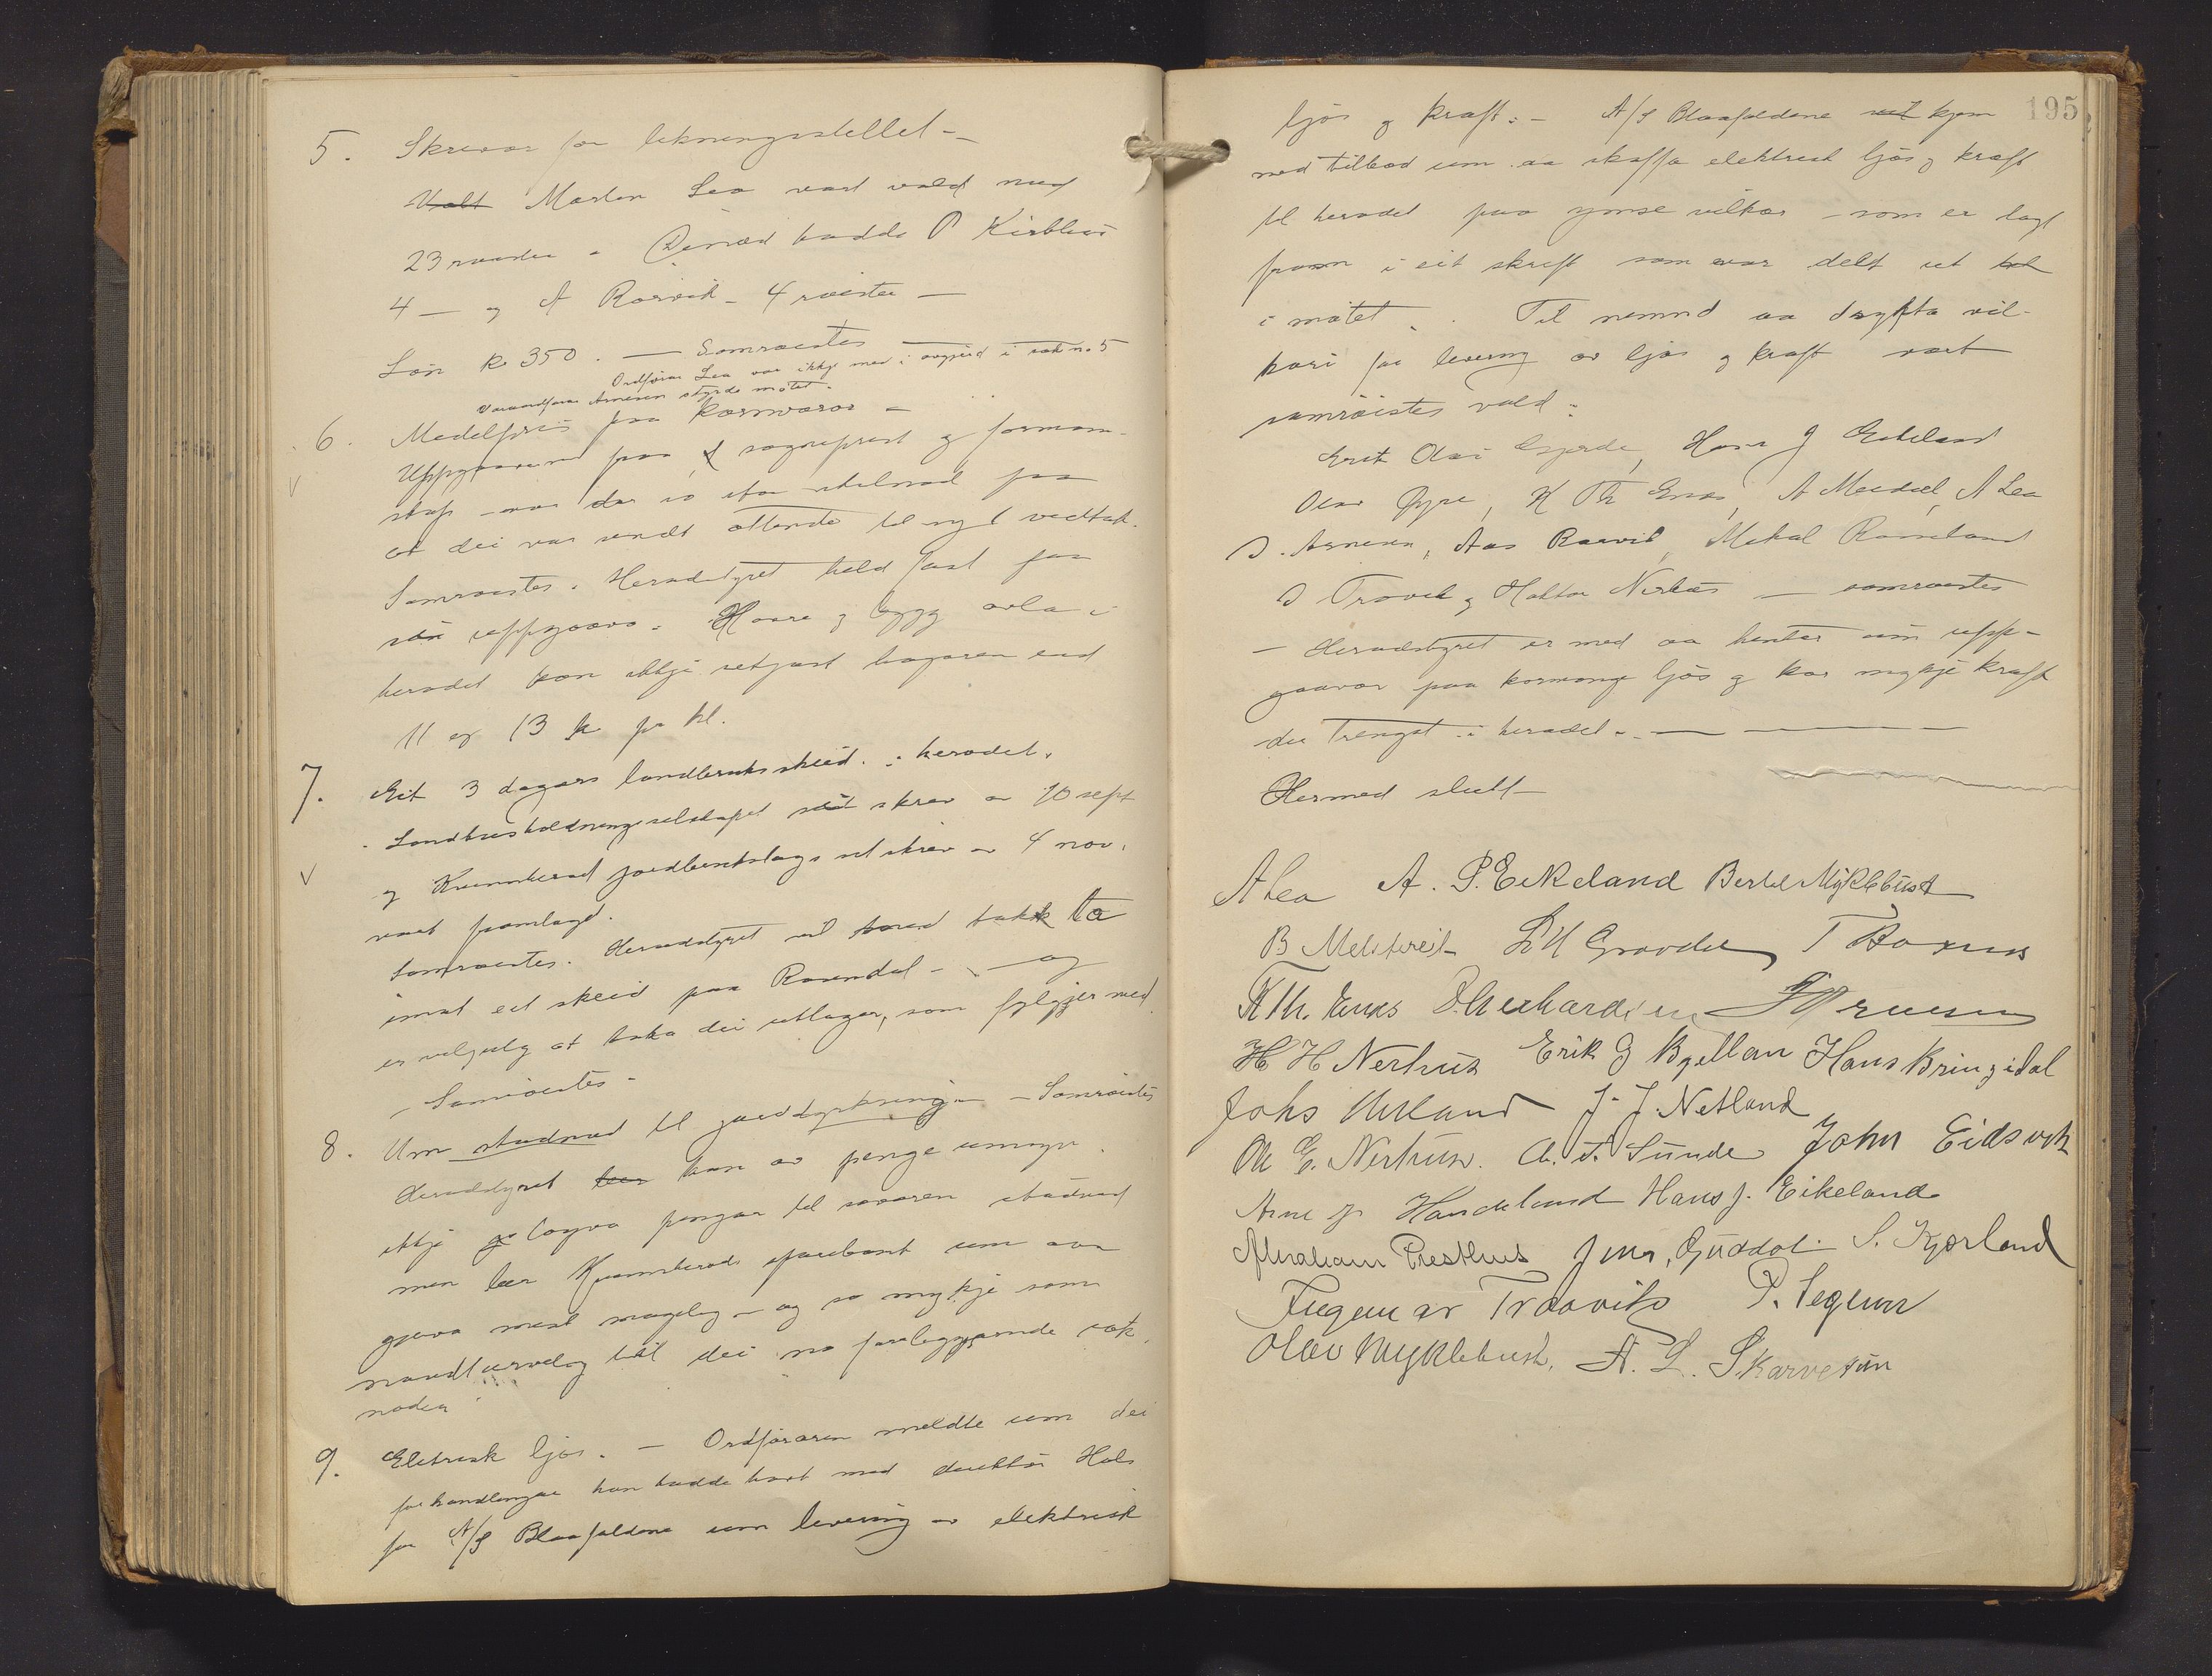 5. Skrivar for likningsstellet –
Valt Morten Lea vart vald med
23 røyster. Dinæst hadde P Kirkhus
4 – og A Røsvik – 4 røister –
Løn kr 350. – Samrøistes
Ordførar Lea var ikkje med i avgjerd i sak no 5
Varaordførar Arnesen styrde møtet.
6. Medelpris paa kornvaror –
Uppgaavene fraa sogneprest og formann-
skap – var der so stor skilnad paa
at dei var sendt attende til nyt vedtak.
Samrøistes. Heradstyret held fast paa
sin uppgaava. Havre og bygg avla i
heradet kan ikkje setjast høgare end
11 og 13 kr pr hl.
7. Eit 3 dagars landbruksskeid i heradet.
Landhusholdningsselskapet sit skriv av 10 sept
og Kvinnherad jordbrukslags sit skriv av 4 nov.
vart framlagd.
Samrøistes. Heradstyret vil med takk ta
imot eit skeid paa Rosendal – og
er veljulg at taka dei utlagor, som fylgjer med
– Samrøistes –
8. Um studnad til jorddyrkning – Samrøistes
Heradstyret kan av penge umsyn
ikkje løyva pengar til saaren studnad
men beer Kvinnherads sparebank um aa
gjeva mest mogeleg – og so mykje som
naudturveleg til dei no fyreliggjande søk-
nader
9. Eletrisk ljos. – Ordføraren meldte um dei
forhandlingar han hadde havt med direktør Hals
for A/S Blaafaldene um levering av elektrisk
195
ljos og kraft. – A/S Blaafaldene vil kjem
med tilbod um aa skaffa elektrisk ljos og kraft
til heradet paa ymse vilkor – som er lagt
fram i eit skrift som var delt ut
i møtet. Til nemnd aa drøfta vil-
kori for levering av ljos og kraft vart
samrøistes vald:
Erik Olai Gjerde, Hans J Eikeland
Olav Øyre, K Th Enes, A Meidal, A Lea
D. Arnesen, Aas Røsvik, Mikal Rosseland
I Traavik og Haktor Nerhus – samrøistes
– Heradstyret er med aa hentar inn upp-
gaavor paa kormange ljos og kor mykje kraft
die trengst i heradet. –
Hermed slutt
A Lea A. P. Eikeland Bertel Myklebust
B Mehlkreit L H Grovde T Røxnes
K Th. Enes O. Gerhardsen D Arnesen
H H Nerhus Erik J Bjelland Hans Bringedal
Johs Utaand J. J. Netland
Ole E. Nerhus. A. T. Sunde John Eidsvik
Arne J Handeland Hans J. Eikeland
Abraham Presthus Jens Guddal S. Kjærland
Ingemar Traavik P. Seglem
Olav Myklebust, A. L. Skarvetun